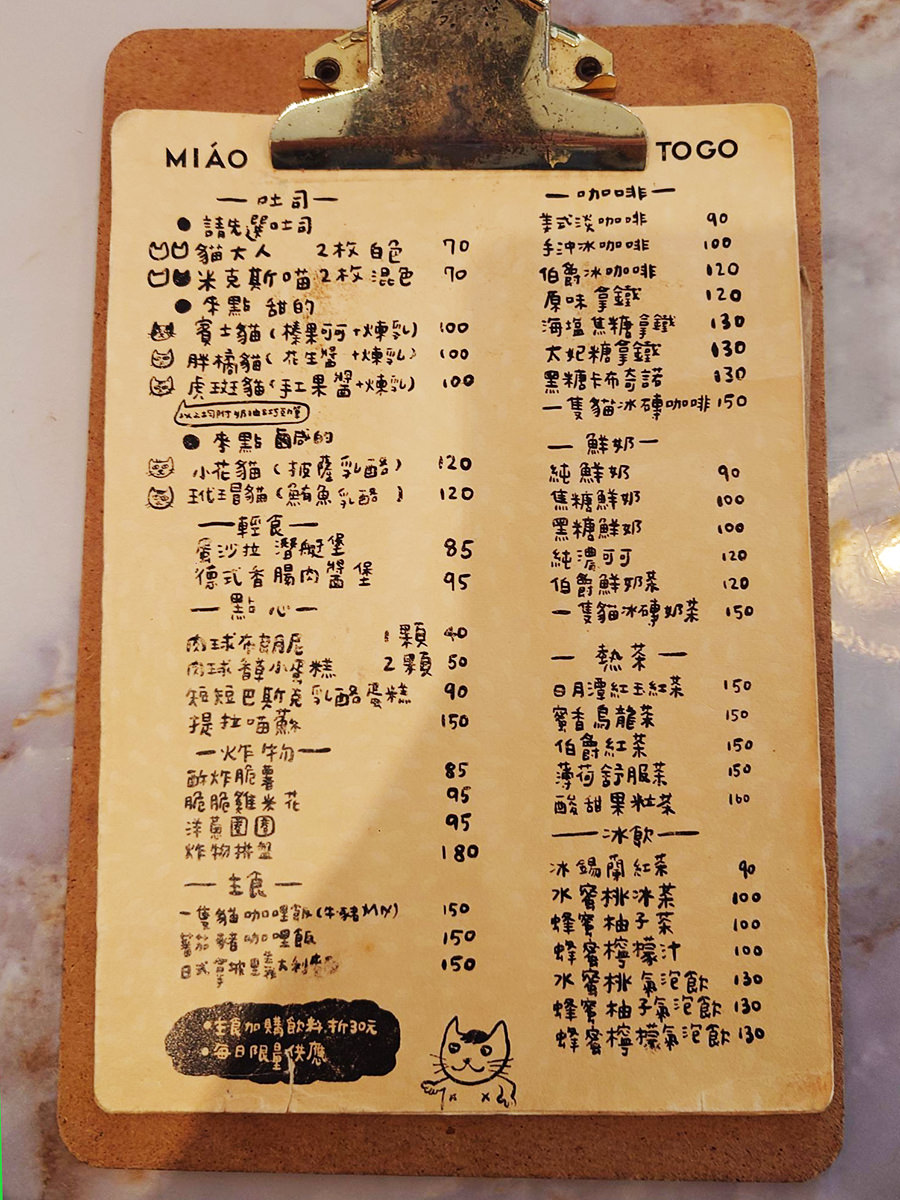 MIÁO
TOGO
一吐司一
●請先選吐司
貓大人 2枚白色 70
米克斯喵 2枚混色 70
●來點 甜的
賓士貓(榛果可可+煉乳) 100
胖橘貓(花生醬+煉乳) 100
虎斑貓(手工果醬+煉乳) 100
●來點 鹹的
小花貓(披薩乳酪) 120
玳瑁貓(鮪魚乳酪) 120
一輕食一
蛋沙拉 潛艇堡 85
德式香腸肉醬堡 95
一點心一
肉球布朗尼 1顆 40
肉球香草小蛋糕 2顆 50
短短巴斯克乳酪蛋糕 90
提拉喵蘇 150
一炸物一
酥炸脆薯 85
脆脆雞米花 95
洋蔥圈圈 95
炸物拼盤 180
一主食一
一隻貓咖哩飯(牛豬MIX) 150
蕃茄豬咖哩飯 150
日式拿坡里義大利 150
•主食加購飲料.折30元
•每日限量供應
一咖啡一
美式淡咖啡 90
手沖冰咖啡 100
伯爵冰咖啡 120
原味拿鐵 120
海塩焦糖拿鐵 130
太妃糖拿鐵 130
黑糖卡布奇諾 130
一隻貓冰磚咖啡 150
一鮮奶一
純鮮奶 90
焦糖鮮奶 100
黑糖鮮奶 100
純濃可可 120
伯爵鮮奶茶 120
一隻貓冰磚奶茶 150
一熱茶一
日月潭紅玉紅茶 150
蜜香烏龍茶 150
伯爵紅茶 150
薄荷舒服茶 150
酸甜果粒茶 160
一冰飲一
冰錫蘭紅茶 90
水蜜桃冰茶 100
蜂蜜柚子茶 100
蜂蜜檸檬汁 100
水蜜桃氣泡飲 130
蜂蜜柚子氣泡飲 130
蜂蜜檸檬氣泡飲 130